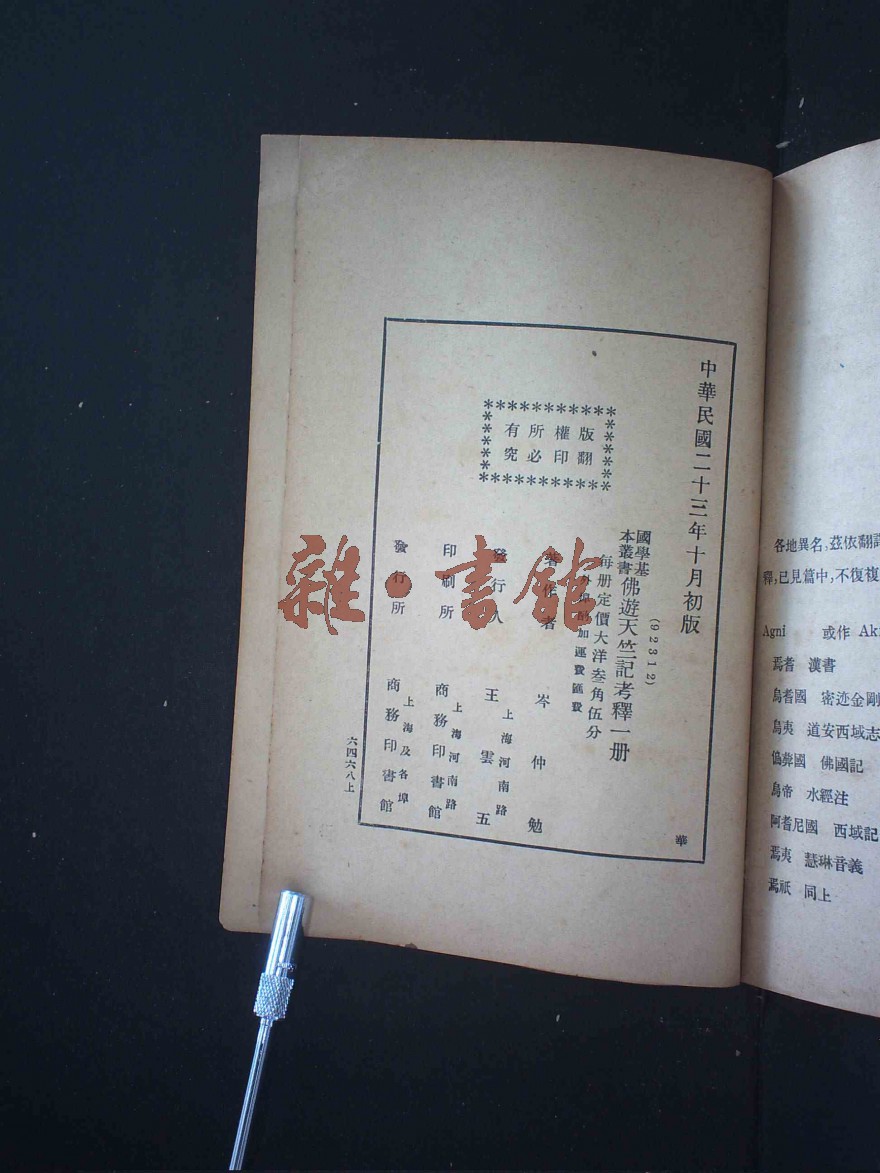 中華民國二十三年十月初版
(92312)
國學基本叢書
佛遊天竺記考釋一册
每册定價大洋叁角伍分
外埠酌加運費匯費
版權所有
翻印必究
著作者 岑仲勉
發行人 王雲五
上海河南路
印刷所 商務印書館
上海河南路
發行所 商務印書館
上海及各埠
六四六八上
華
雜·書館
各地異名,茲依翻譯
釋,已見篇中,不復複
Agni 或作 Aki
焉耆 漢書
烏耆國 密迹金剛
烏夷 道安西域志
僞彝國 佛國記
烏帝 水經注
阿耆尼國 西域記
焉夷 慧琳音義
焉祇 同上